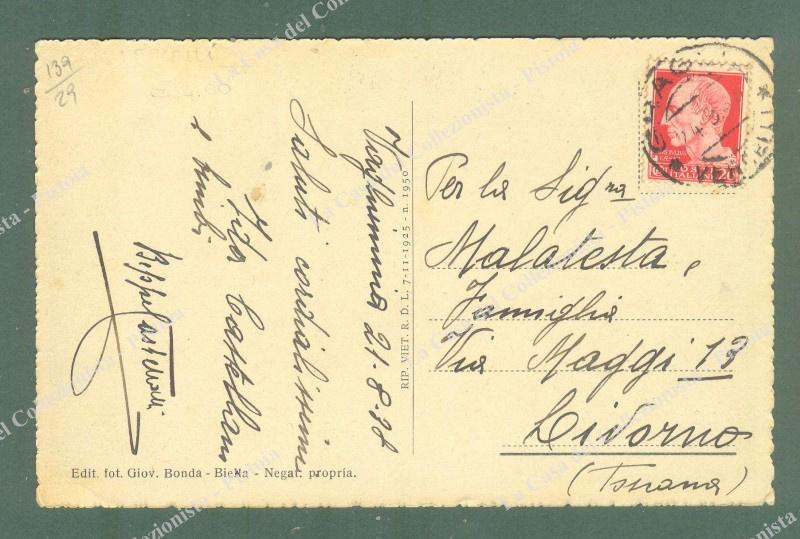 139
29
21-8-38
Saluti cordialissimi
Ida Castellani
e famiglia
RIP. VIET. R. D. L. 7-11-1925 - n. 1950
Per la Sig.na
Malatesta e
Famiglia
Via Maggi 13
Livorno
(Toscana)
Edit. fot. Giov. Bonda - Biella - Negat. propria.
La Casa del Collezionista - Pistoia